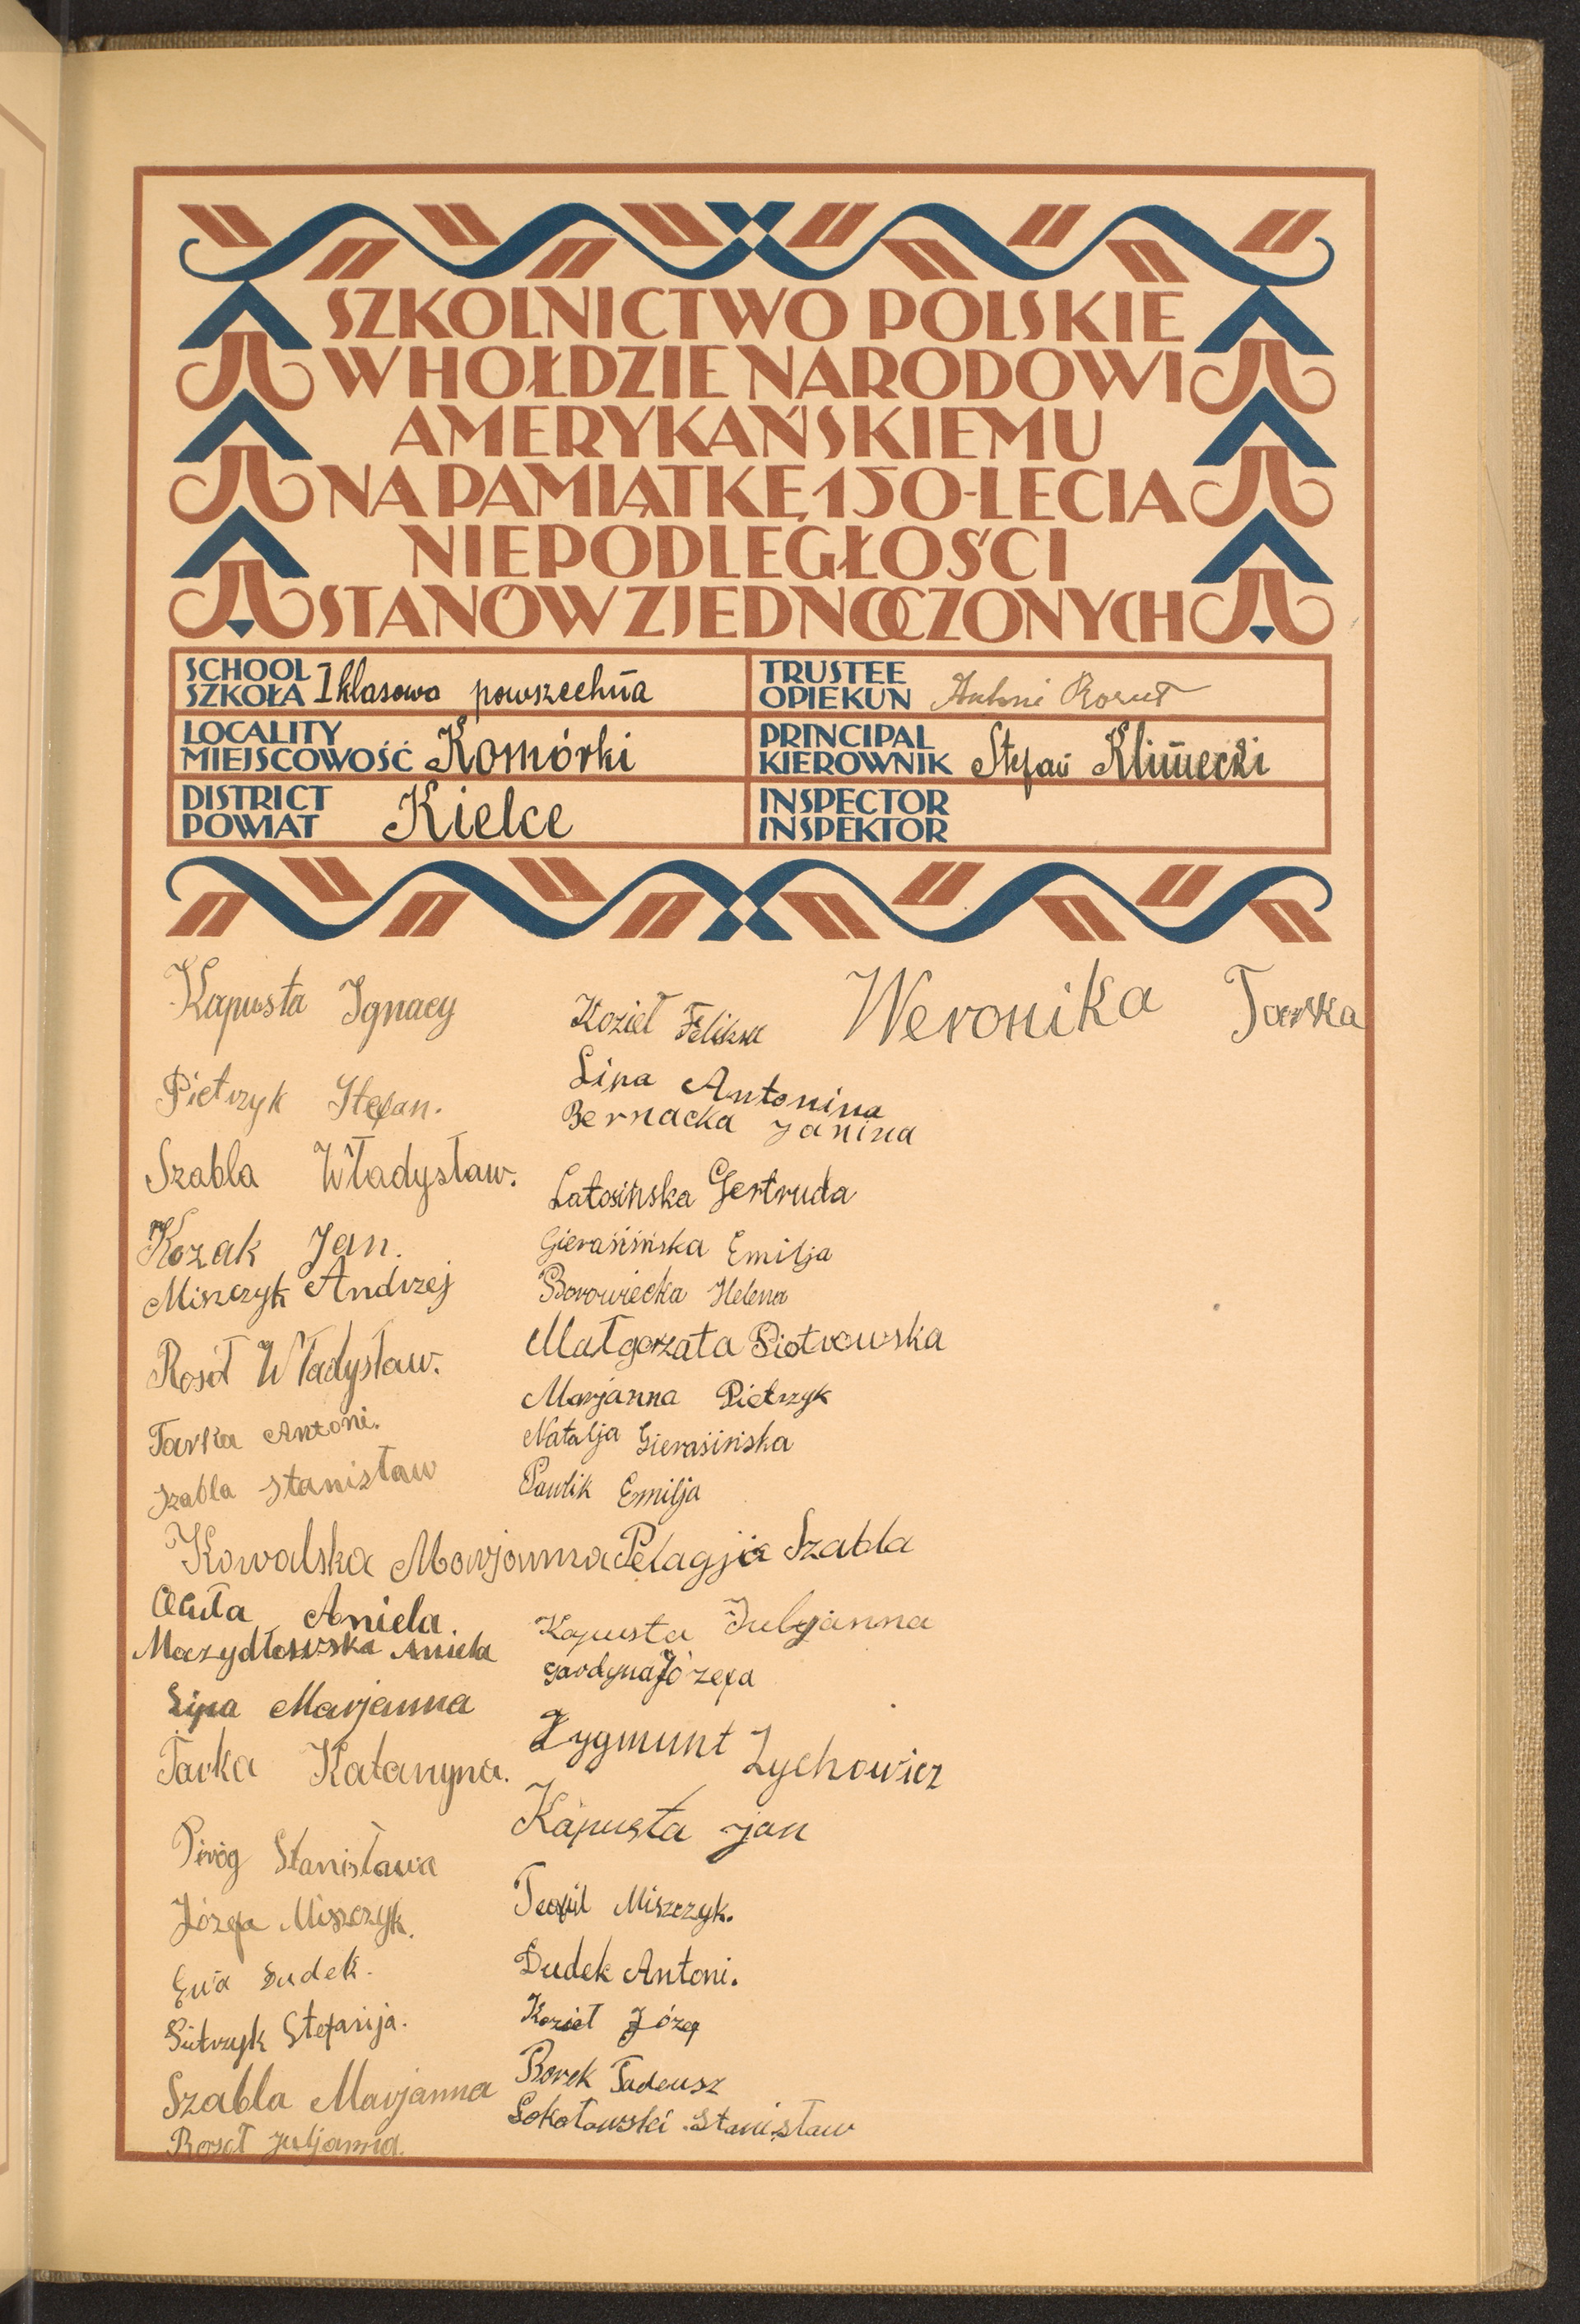 SZKOLNICTWO POLSKIE
W HOŁDZIE NARODOWI
AMERYKAŃSKIEMU
NA PAMIĄTKĘ 150-LECIA
NIEPODLEGŁOŚCI
STANÓW ZJEDNOCZONYCH
SCHOOL
SZKOŁA 1 klasowa powszechna
TRUSTEE
OPIEKUN
LOCALITY
MIEJSCOWOŚĆ Komórki
PRINCIPAL
KIEROWNIK Stefan Klimecki
DISTRICT
POWIAT Kielce
INSPECTOR
INSPEKTOR
Kapusta Ignacy
Pietrzyk Stefan.
Szabla Władysław.
Kozak Jan.
Miszczyk Andrzej
Rosół Władysław.
Tarka Antoni.
Szabla Stanisław
Kowalska Marjanna
Aniela
Mazydłowska Aniela
Lipa Marjanna
Tarka Katarzyna.
Piróg Stanisława
Józefa Miszczyk.
Ewa Dudek.
Pietrzyk Stefanija.
Szabla Marjanna
Rosół Juljanna.
Kozieł Feliksa
Lipa Antonina
Bernacka Janina
Latosińska Gertruda
Gierasińska Emilja
Borowiecka Helena
Małgorzata Piotrowska
Marjanna Pietrzyk
Natalja Gierasińska
Pawlik Emilja
Pelagja Szabla
Kapusta Juljanna
Gardyna Józefa
Zygmunt Zychowicz
Kapusta Jan
Teofil Miszczyk.
Dudek Antoni.
Kozieł Józef
Borek Tadeusz
Sokołowski Stanisław
Weronika Tarka